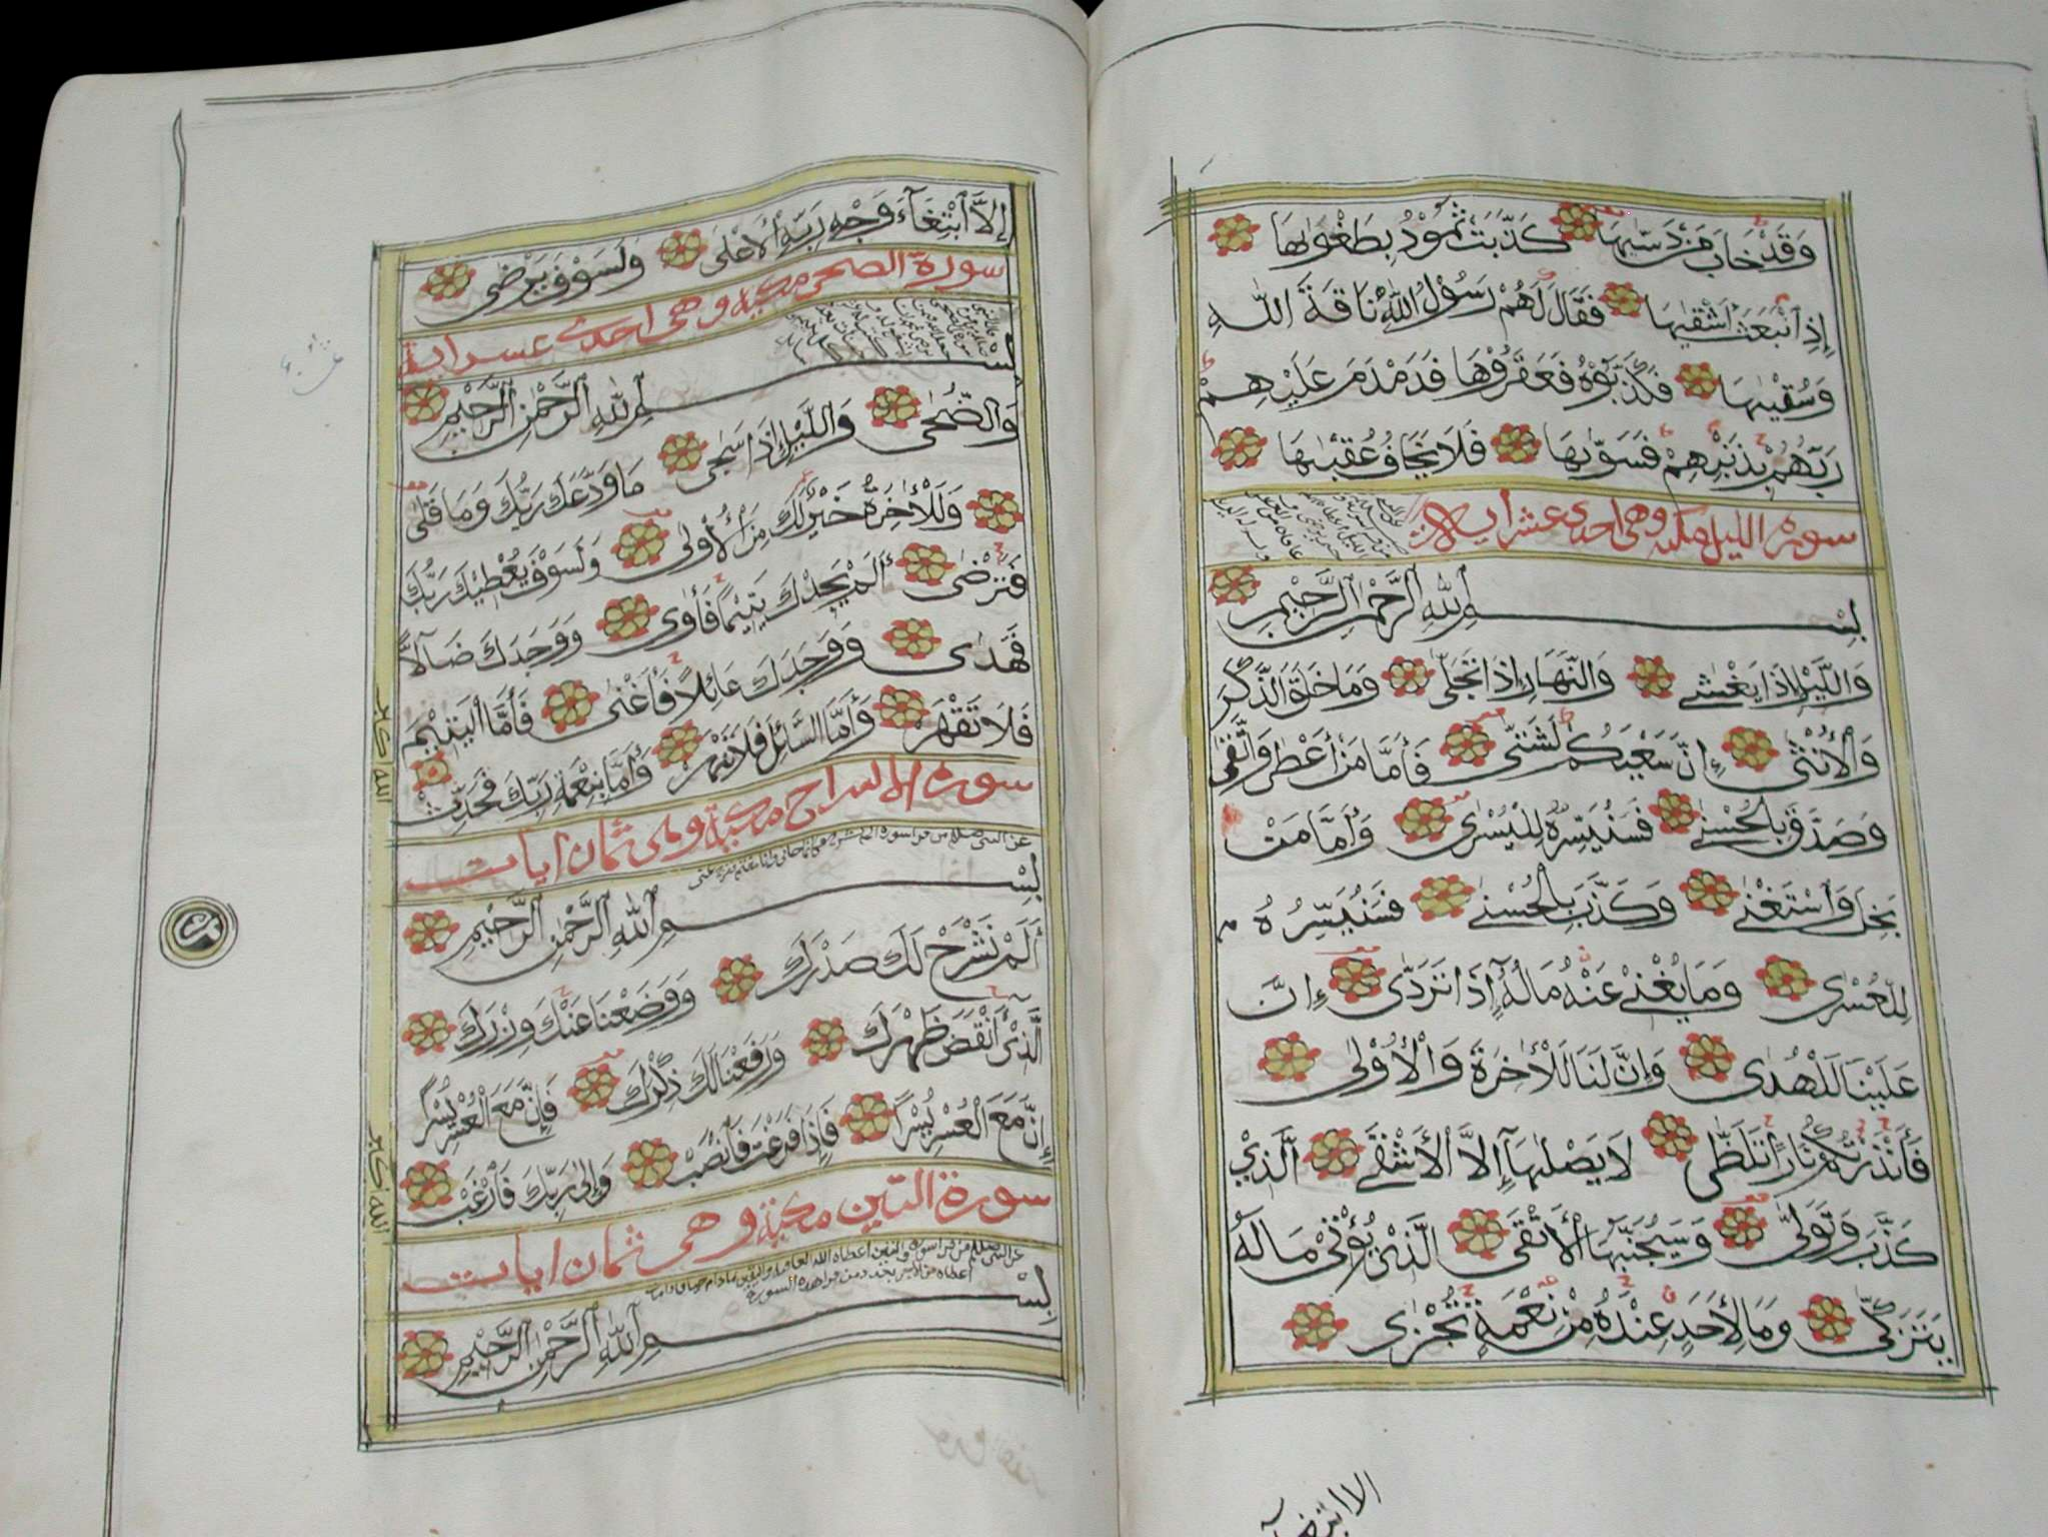 وَقَدْ خَابَ مَنْ دَسّٰيهَا كَذَّبَتْ ثَمُوْدُ بِطَغْوٰىهَا
اِذِ انْۢبَعَثَ اَشْقٰيهَا فَقَالَ لَهُمْ رَسُوْلُ اللّٰهِ نَاقَةَ اللّٰهِ
وَسُقْيٰهَا فَكَذَّبُوْهُ فَعَقَرُوْهَا فَدَمْدَمَ عَلَيْهِمْ
رَبُّهُمْ بِذَنْۢبِهِمْ فَسَوّٰيهَا فَلَا يَخَافُ عُقْبٰهَا
سورة الليل مكية وهي احدى عشر اية
بِسْمِ اللّٰهِ الرَّحْمٰنِ الرَّحِيْمِ
وَالَّيْلِ اِذَا يَغْشٰى وَالنَّهَارِ اِذَا تَجَلّٰى وَمَا خَلَقَ الذَّكَرَ
وَالْاُنْثٰى اِنَّ سَعْيَكُمْ لَشَتّٰى فَاَمَّا مَنْ اَعْطٰى وَاتَّقٰى
وَصَدَّقَ بِالْحُسْنٰى فَسَنُيَسِّرُهٗ لِلْيُسْرٰى وَاَمَّا مَنْۢ
بَخِلَ وَاسْتَغْنٰى وَكَذَّبَ بِالْحُسْنٰى فَسَنُيَسِّرُهٗ
لِلْعُسْرٰى وَمَا يُغْنِيْ عَنْهُ مَالُهٗٓ اِذَا تَرَدّٰى اِنَّ
عَلَيْنَا لَلْهُدٰى وَاِنَّ لَنَا لَلْاٰخِرَةَ وَالْاُوْلٰى
فَاَنْذَرْتُكُمْ نَارًا تَلَظّٰى لَا يَصْلٰىهَآ اِلَّا الْاَشْقٰى الَّذِيْ
كَذَّبَ وَتَوَلّٰى وَسَيُجَنَّبُهَا الْاَتْقٰى الَّذِيْ يُؤْتِيْ مَالَهٗ
يَتَزَكّٰى وَمَا لِاَحَدٍ عِنْدَهٗ مِنْ نِعْمَةٍ تُجْزٰى
اِلَّا ابْتِغَآءَ وَجْهِ رَبِّهِ الْاَعْلٰى وَلَسَوْفَ يَرْضٰى
سورة الضحى مكية وهي احدى عشر اية
بِسْمِ اللّٰهِ الرَّحْمٰنِ الرَّحِيْمِ
وَالضُّحٰى وَاللَّيْلِ اِذَا سَجٰى مَا وَدَّعَكَ رَبُّكَ وَمَا قَلٰى
وَلَلْاٰخِرَةُ خَيْرٌ لَّكَ مِنَ الْاُوْلٰى وَلَسَوْفَ يُعْطِيْكَ رَبُّكَ
فَتَرْضٰى اَلَمْ يَجِدْكَ يَتِيْمًا فَاٰوٰى وَوَجَدَكَ ضَآلًّا
فَهَدٰى وَوَجَدَكَ عَآئِلًا فَاَغْنٰى فَاَمَّا الْيَتِيْمَ
فَلَا تَقْهَرْ وَاَمَّا السَّآئِلَ فَلَا تَنْهَرْ وَاَمَّا بِنِعْمَةِ رَبِّكَ فَحَدِّثْ
سورة الانشراح مكية وهي ثمان ايات
بِسْمِ اللّٰهِ الرَّحْمٰنِ الرَّحِيْمِ
اَلَمْ نَشْرَحْ لَكَ صَدْرَكَ وَوَضَعْنَا عَنْكَ وِزْرَكَ
الَّذِيْٓ اَنْقَضَ ظَهْرَكَ وَرَفَعْنَا لَكَ ذِكْرَكَ فَاِنَّ مَعَ الْعُسْرِ يُسْرًا
اِنَّ مَعَ الْعُسْرِ يُسْرًا فَاِذَا فَرَغْتَ فَانْصَبْ وَاِلٰى رَبِّكَ فَارْغَبْ
سورة التين مكية وهي ثمان ايات
بِسْمِ اللّٰهِ الرَّحْمٰنِ الرَّحِيْمِ